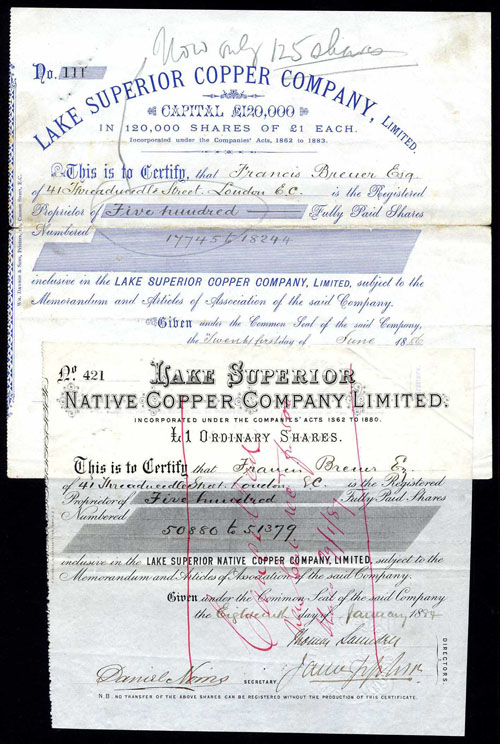 Now only 125 shares
No. 111
LAKE SUPERIOR COPPER COMPANY, LIMITED.
CAPITAL £120,000
IN 120,000 SHARES OF £1 EACH.
Incorporated under the Companies' Acts, 1862 to 1883.
This is to Certify, that Francis Breuer Esq
of 41 Threadneedle Street London E.C. is the Registered
Proprietor of Five hundred Fully Paid Shares
Numbered 17745 to 18244
inclusive in the LAKE SUPERIOR COPPER COMPANY, LIMITED, subject to the
Memorandum and Articles of Association of the said Company.
Given under the Common Seal of the said Company,
the Twenty first day of June 1886
No 421
LAKE SUPERIOR
NATIVE COPPER COMPANY LIMITED.
INCORPORATED UNDER THE COMPANIES' ACTS 1862 TO 1880.
£1 ORDINARY SHARES.
This is to Certify that Francis Breuer Esq
of 41 Threadneedle Street London E.C. is the Registered
Proprietor of Five hundred Fully Paid Shares
Numbered
50880 to 51379
inclusive in the LAKE SUPERIOR NATIVE COPPER COMPANY, LIMITED, subject to the
Memorandum and Articles of Association of the said Company.
Given under the Common Seal of the said Company
the Eighteenth day of January 1884
Thomas Saunders
DIRECTORS.
SECRETARY
N.B. NO TRANSFER OF THE ABOVE SHARES CAN BE REGISTERED WITHOUT THE PRODUCTION OF THIS CERTIFICATE.